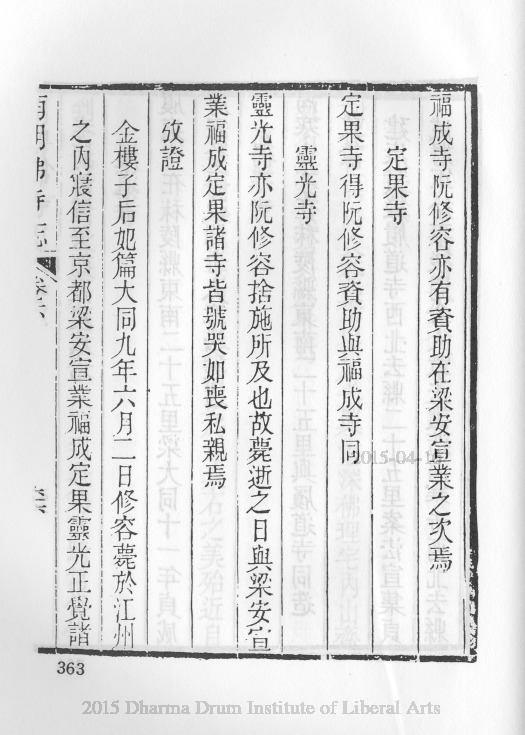 福成寺阮修容亦有資助在梁安宣業之次焉
定果寺
定果寺得阮修容資助與福成寺同
靈光寺
靈光寺亦阮修容捨施所及也故薨逝之日與梁安宣
業福成定果諸寺皆號哭如喪私親焉
攷證
金樓子后妃篇大同九年六月二日修容薨於江州
之內寢信至京都梁安宣業福成定果靈光正覺諸
南朝佛寺志
卷六
363
2015-04-1
2015 Dharma Drum Institute of Liberal Arts